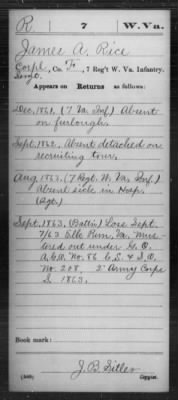 R 7 W. Va.
James A. Rice
Corpl
Sergt., Co. F, 7 Reg't W. Va. Infantry.
Appears on Returns as follows:
Dec. 1861. (7 Va. Inf.) Absent
on furlough.
Sept. 1862. Absent detached on
recruiting tour.
Aug. 1863. (7 Regt. W. Va. Inf.)
Absent sick in Hosp.
(Sgt.)
Sept. 1863. (Battn) Loss Sept.
7/63 Elk Run, Va. Mus
tered out under G. O.
A. G. O. No. 86 C. S. & S. O.
No. 208. 2" Army Corps
S. 1863.
Book mark:
J. B. Sitler
Copyist.